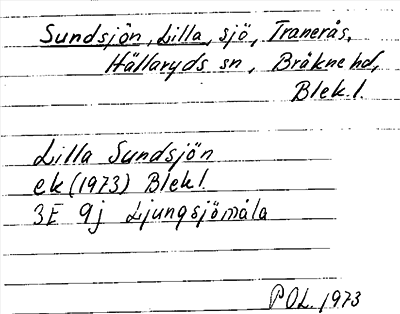 Sundsjön, Lilla, sjö, Tranerås,
Hällaryds sn, Bråkne hd,
Blekl.
Lilla Sundsjön
ek (1973) Blekl.
3E 9j Ljungsjömåla
POL. 1973